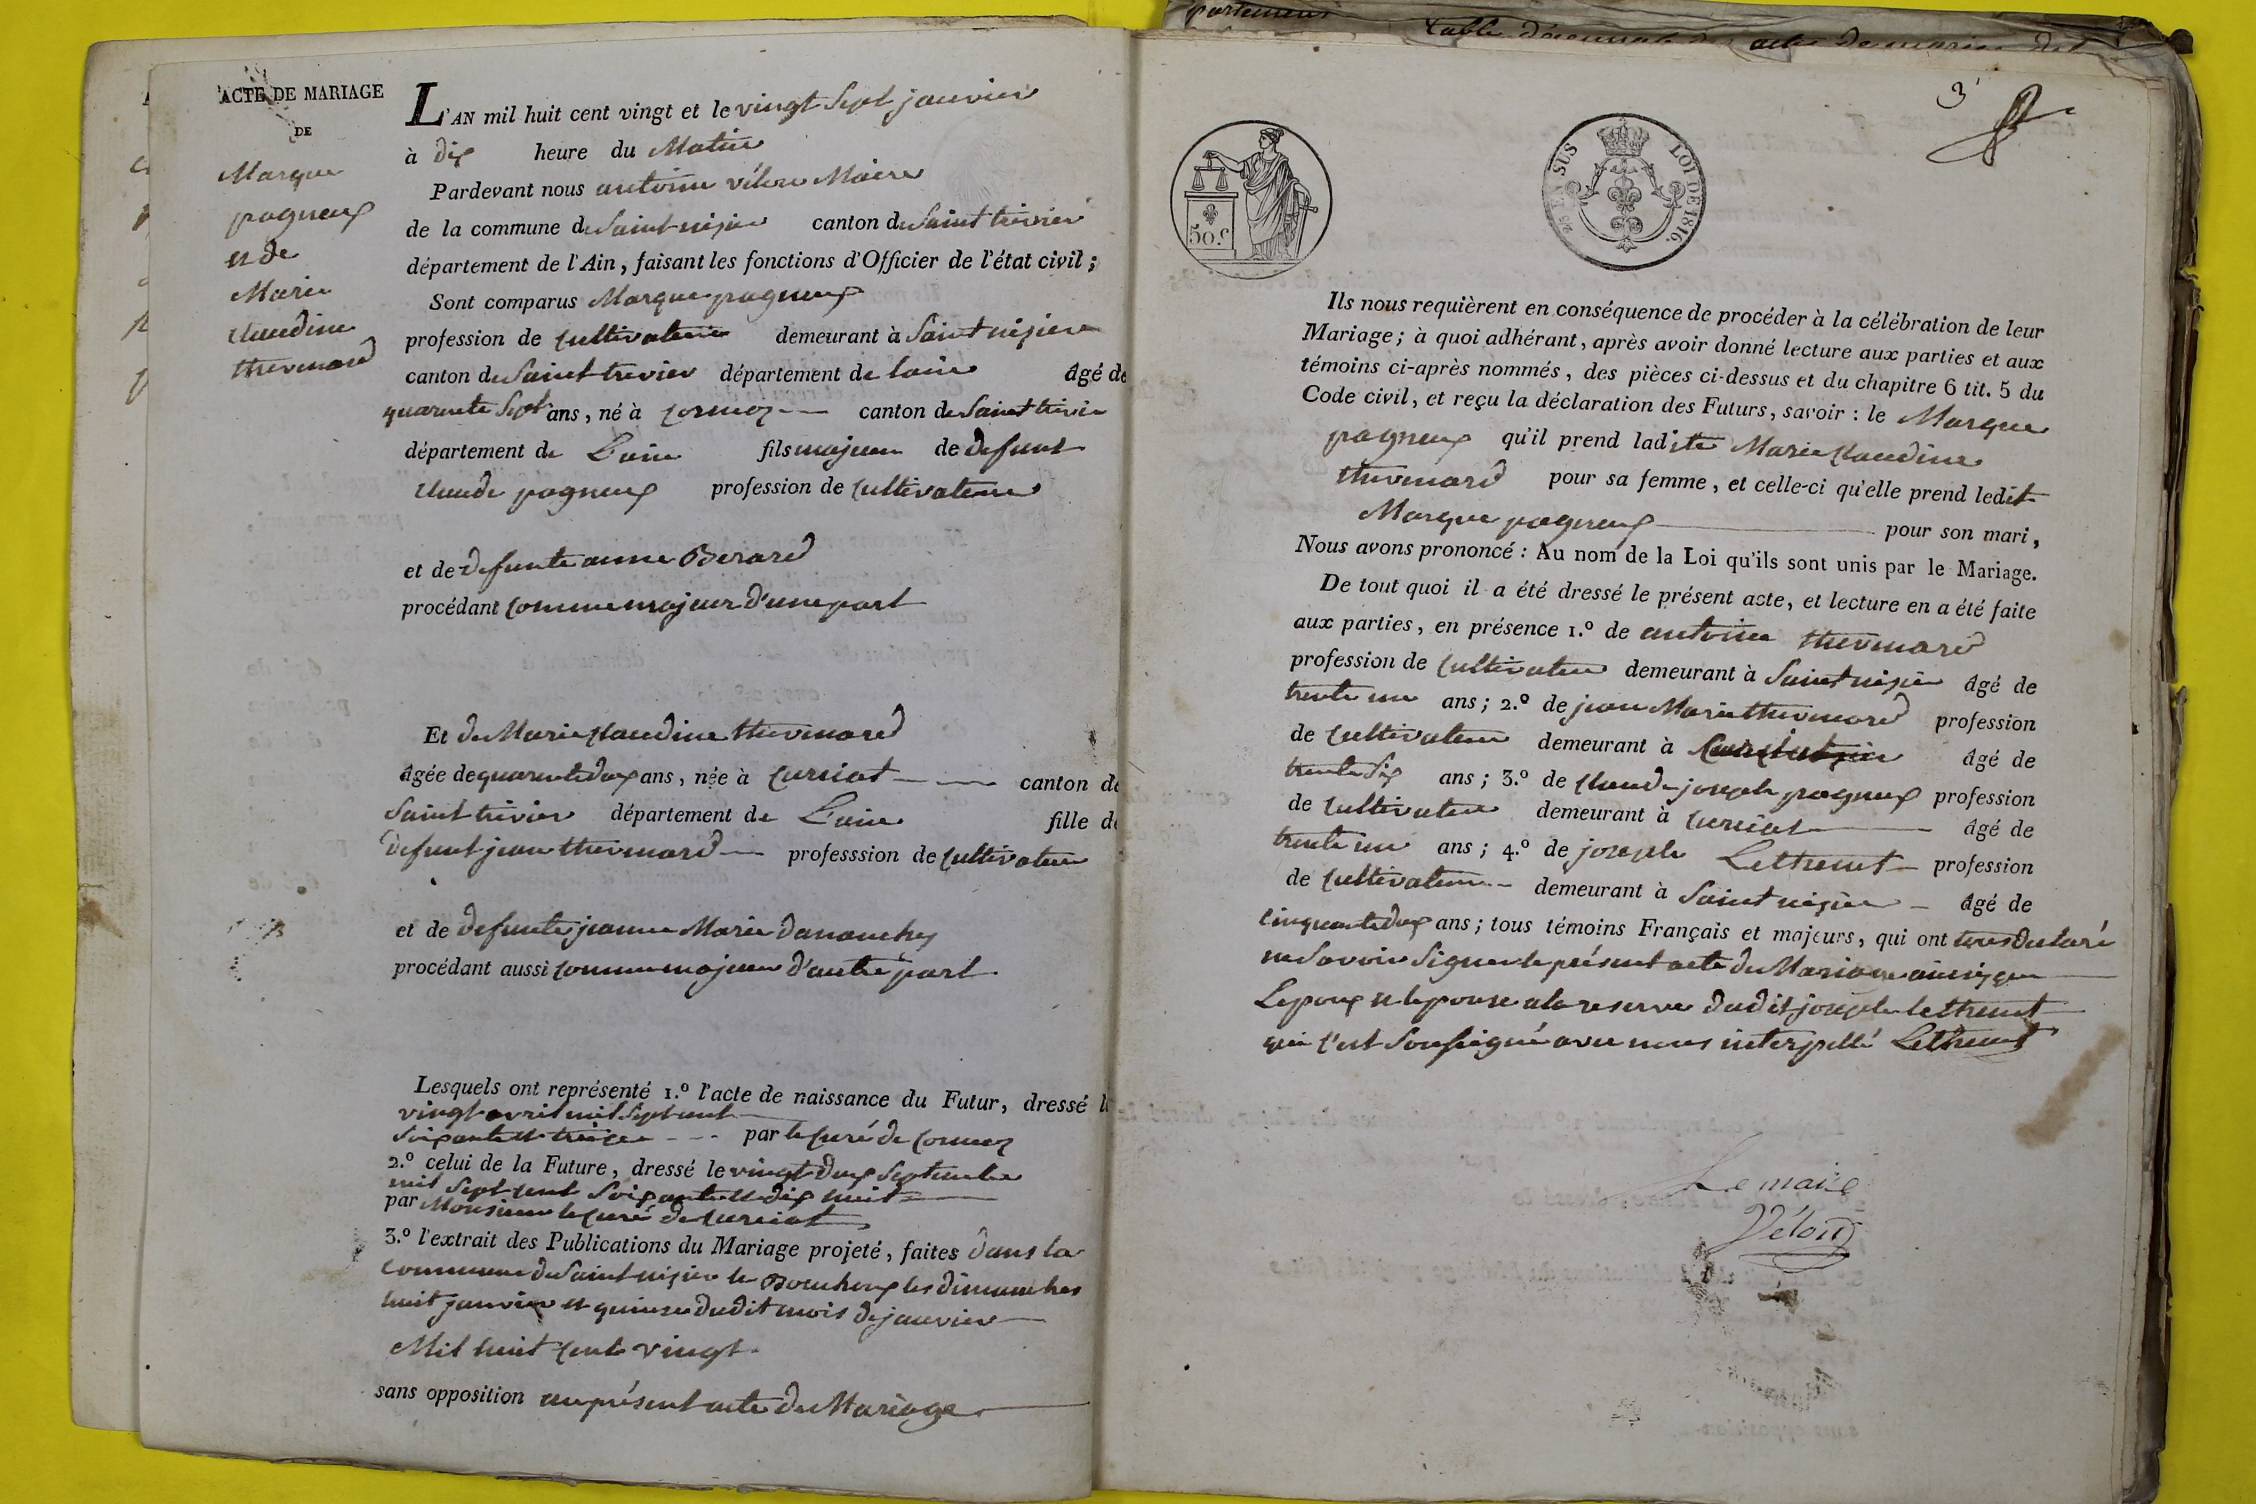 ACTE DE MARIAGE
DE
Marque
pagneux
et de
Marie
claudine
thevenard
L'AN mil huit cent vingt et le vingt Sept janvier
à dix heure du Matin
Pardevant nous antoine véloin Maire
de la commune de Saint nizier canton de Saint trivier
département de l'Ain, faisant les fonctions d'Officier de l'état civil ;
Sont comparus Marque pagneux
profession de Cultivateur demeurant à Saint nizier
canton de Saint trivier département de lain âgé de
quarante Sept ans, né à Cormoz canton de Saint trivier
département de L'ain fils majeur de defunt
claude pagneux profession de Cultivateur
et de defunte anne Berard
procédant Comme majeur d'une part
Et de Marie Claudine thevenard
âgée de quarante deux ans, née à Curciat canton de
Saint trivier département de L'ain fille de
defunt jean thevenard professsion de Cultivateur
et de defunte jeanne Marie Dananchey
procédant aussi Comme majeure d'autre part
Lesquels ont représenté 1.º l'acte de naissance du Futur, dressé le
vingt avril mil Sept cent
Soixante et treize par le Curé de Cormoz
2.º celui de la Future, dressé le vingt deux Septembre
mil Sept Cent Soixante et dix huit
par Monsieur le Curé de Curciat
3.º l'extrait des Publications du Mariage projeté, faites dans la
Commune de Saint nizier le Bouchoux les dimanches
huit janvier et quinze dudit mois de janvier
Mil huit Cent vingt
sans opposition au présent acte de Mariage
partement
table décennale des actes de mariage de
3
50.c
EN SUS
LOI DE 1816.
Ils nous requièrent en conséquence de procéder à la célébration de leur
Mariage ; à quoi adhérant, après avoir donné lecture aux parties et aux
témoins ci-après nommés, des pièces ci-dessus et du chapitre 6 tit. 5 du
Code civil, et reçu la déclaration des Futurs, savoir : le Marque
pagneux qu'il prend ladite Marie Claudine
thevenard pour sa femme, et celle-ci qu'elle prend ledit
Marque pagneux pour son mari,
Nous avons prononcé : Au nom de la Loi qu'ils sont unis par le Mariage.
De tout quoi il a été dressé le présent acte, et lecture en a été faite
aux parties, en présence 1.º de antoine thevenard
profession de Cultivateur demeurant à Saint nizier âgé de
trente un ans ; 2.º de jean Marie thevenard profession
de Cultivateur demeurant à âgé de
trente Six ans ; 3.º de Claude joseph pagneux profession
de Cultivateur demeurant à Curciat âgé de
trente un ans ; 4.º de joseph Lethenet profession
de Cultivateur demeurant à Saint nizier âgé de
Cinquante deux ans ; tous témoins Français et majeurs, qui ont tous declaré
ne Savoir Signer le présent acte de Mariage ainsi que
Lepoux et lepouse a la reserve dudit joseph lethenet
qui C'est Soussigné avec nous interpellé Lethenet
Le maire
Véloin